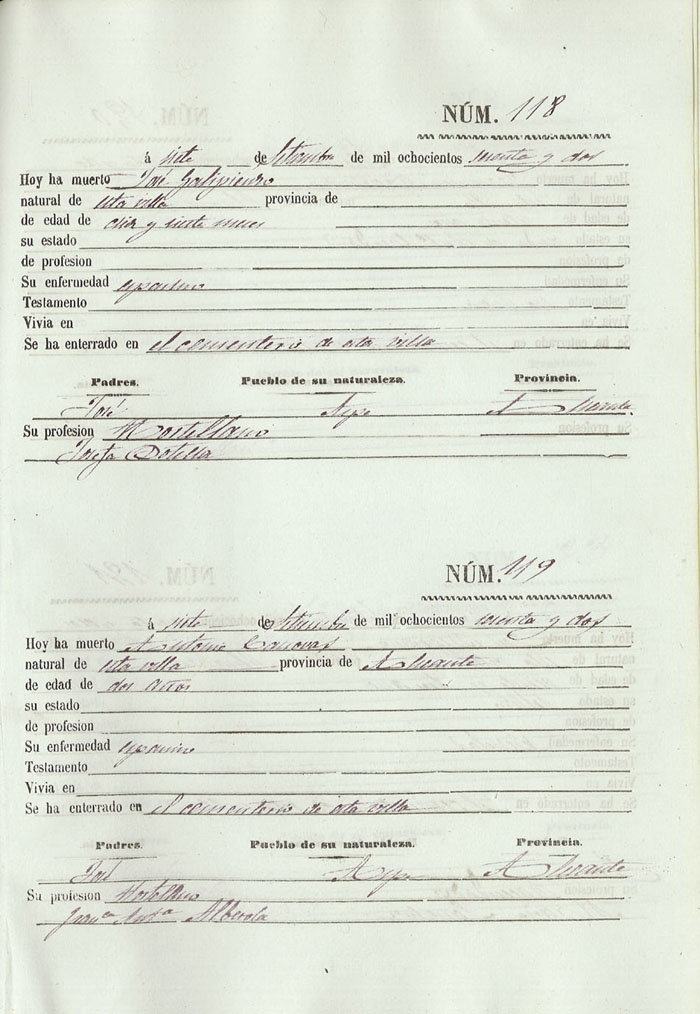 NÚM. 118
á siete de Setiembre de mil ochocientos sesenta y dos
Hoy ha muerto José Galipienso
natural de esta villa provincia de
de edad de diez y siete meses
su estado
de profesion
Su enfermedad espasmo
Testamento
Vivia en
Se ha enterrado en el cementerio de esta villa
Padres. Pueblo de su naturaleza. Provincia.
José Aspe Alicante.
Su profesion Hortellano
Josefa Botella
NÚM. 119
á siete de Setiembre de mil ochocientos sesenta y dos
Hoy ha muerto Antonio Canovas
natural de esta villa provincia de Alicante
de edad de dos años
su estado
de profesion
Su enfermedad espasmo
Testamento
Vivia en
Se ha enterrado en el cementerio de esta villa
Padres. Pueblo de su naturaleza. Provincia.
José Aspe Alicante
Su profesion Hortellano
Franca Anta Alberola